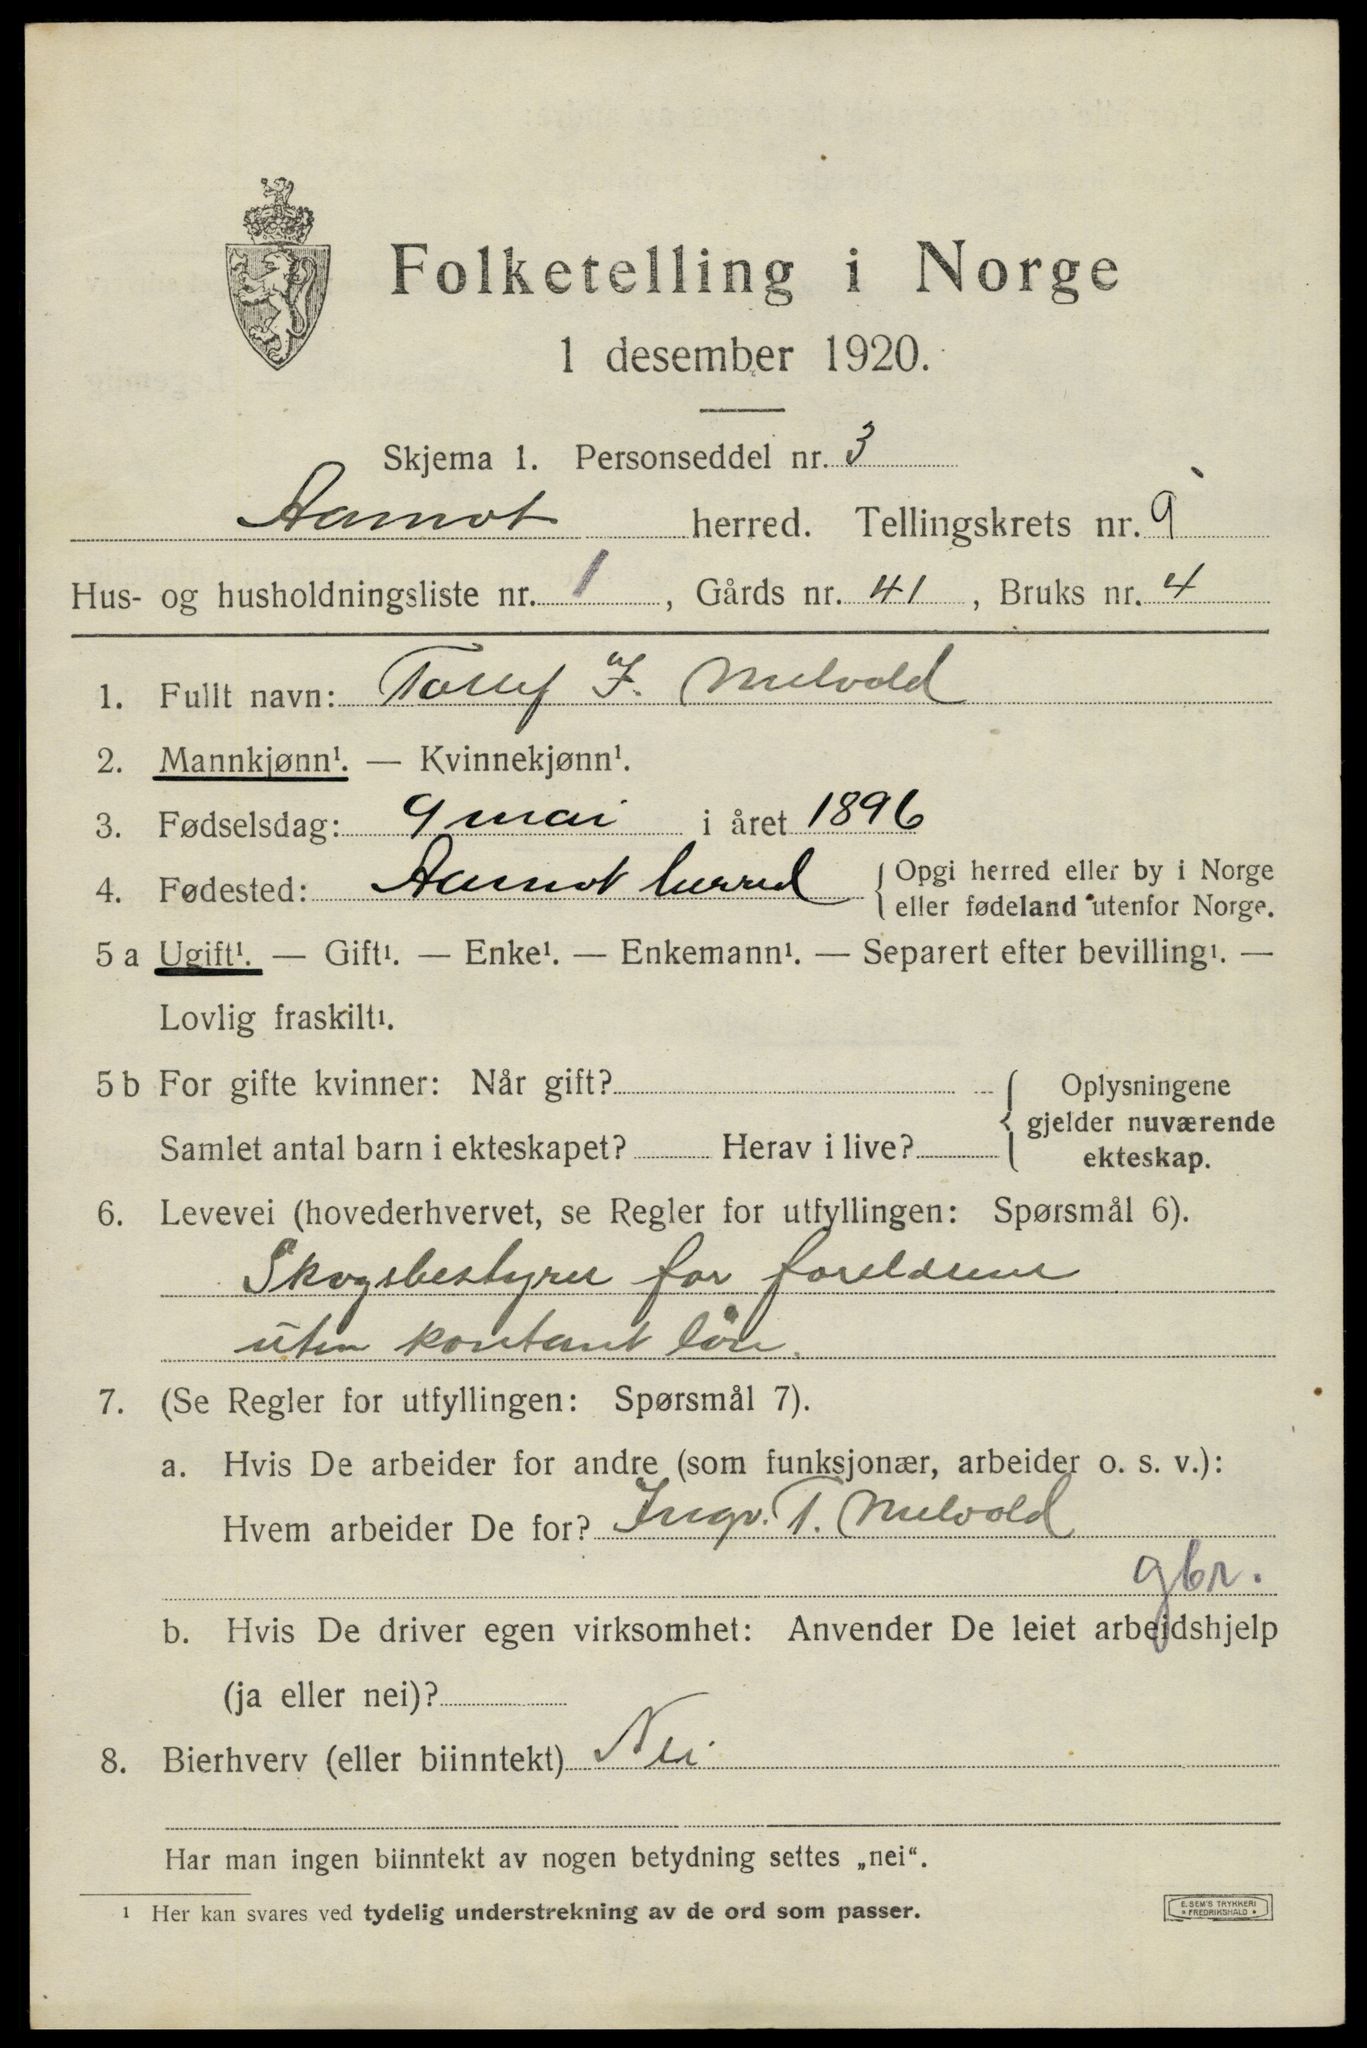 Folketelling i Norge
1 desember 1920.
Skjema 1. Personseddel nr. 3
Aamot herred. Tellingskrets nr. 9
Hus- og husholdningsliste nr. 1, Gårds nr. 41, Bruks nr. 4
1. Fullt navn: Tollef I. Melvold
2. Mannkjønn¹. — Kvinnekjønn¹.
3. Fødselsdag: 9 mai i året 1896
4. Fødested: Aamot herred { Opgi herred eller by i Norge
eller fødeland utenfor Norge.
5 a Ugift¹. — Gift¹. — Enke¹. — Enkemann¹. — Separert efter bevilling¹. —
Lovlig fraskilt¹.
5 b For gifte kvinner: Når gift? { Oplysningene
gjelder nuværende
Samlet antal barn i ekteskapet? Herav i live? ekteskap.
6. Levevei (hovederhvervet, se Regler for utfyllingen: Spørsmål 6).
Skogsbestyrer for foreldrene
uten kontant løn.
7. (Se Regler for utfyllingen: Spørsmål 7).
a. Hvis De arbeider for andre (som funksjonær, arbeider o. s. v.):
Hvem arbeider De for? Ingv. T. Melvold
gbr.
b. Hvis De driver egen virksomhet: Anvender De leiet arbejdshjelp
(ja eller nei)?
8. Bierhverv (eller biinntekt) Nei
Har man ingen biinntekt av nogen betydning settes „nei“.
¹ Her kan svares ved tydelig understrekning av de ord som passer.
E. SEM'S TRYKKERI
* FREDRIKSHALD *